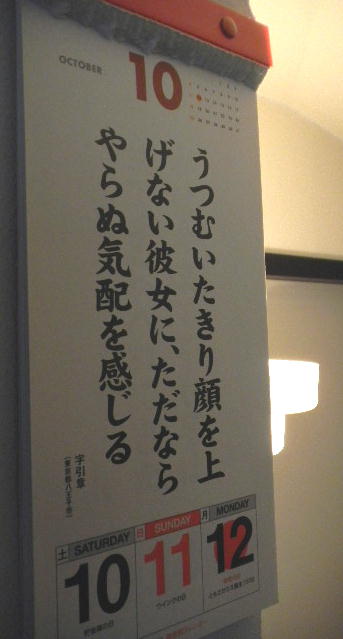 OCTOBER
10
うつむいたきり顔を上
げない彼女に、ただなら
やらぬ気配を感じる
字引章
(東京都八王子市)
土 SATURDAY
10
日 SUNDAY
11
ウインクの日
月 MONDAY
12